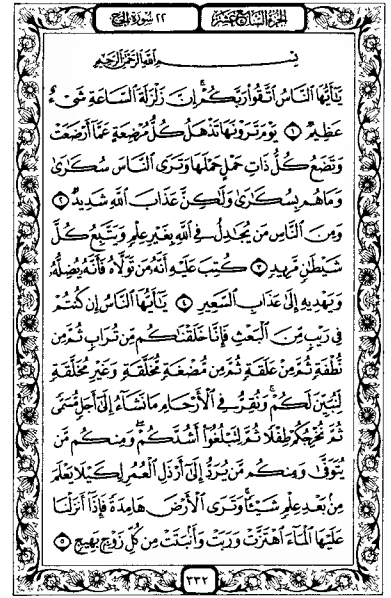 الجزء السابع عشر
٢٢ سورة الحج
بِسْمِ اللَّهِ الرَّحْمَٰنِ الرَّحِيمِ
يَٰٓأَيُّهَا ٱلنَّاسُ ٱتَّقُوا۟ رَبَّكُمْ ۚ إِنَّ زَلْزَلَةَ ٱلسَّاعَةِ شَىْءٌ
عَظِيمٌ ١ يَوْمَ تَرَوْنَهَا تَذْهَلُ كُلُّ مُرْضِعَةٍ عَمَّآ أَرْضَعَتْ
وَتَضَعُ كُلُّ ذَاتِ حَمْلٍ حَمْلَهَا وَتَرَى ٱلنَّاسَ سُكَٰرَىٰ
وَمَا هُم بِسُكَٰرَىٰ وَلَٰكِنَّ عَذَابَ ٱللَّهِ شَدِيدٌ ٢
وَمِنَ ٱلنَّاسِ مَن يُجَٰدِلُ فِى ٱللَّهِ بِغَيْرِ عِلْمٍ وَيَتَّبِعُ كُلَّ
شَيْطَٰنٍ مَّرِيدٍ ٣ كُتِبَ عَلَيْهِ أَنَّهُۥ مَن تَوَلَّاهُ فَأَنَّهُۥ يُضِلُّهُۥ
وَيَهْدِيهِ إِلَىٰ عَذَابِ ٱلسَّعِيرِ ٤ يَٰٓأَيُّهَا ٱلنَّاسُ إِن كُنتُمْ
فِى رَيْبٍ مِّنَ ٱلْبَعْثِ فَإِنَّا خَلَقْنَٰكُم مِّن تُرَابٍ ثُمَّ مِن
نُّطْفَةٍ ثُمَّ مِنْ عَلَقَةٍ ثُمَّ مِن مُّضْغَةٍ مُّخَلَّقَةٍ وَغَيْرِ مُخَلَّقَةٍ
لِّنُبَيِّنَ لَكُمْ ۚ وَنُقِرُّ فِى ٱلْأَرْحَامِ مَا نَشَآءُ إِلَىٰٓ أَجَلٍ مُّسَمًّى
ثُمَّ نُخْرِجُكُمْ طِفْلًا ثُمَّ لِتَبْلُغُوٓا۟ أَشُدَّكُمْ ۖ وَمِنكُم مَّن
يُتَوَفَّىٰ وَمِنكُم مَّن يُرَدُّ إِلَىٰٓ أَرْذَلِ ٱلْعُمُرِ لِكَيْلَا يَعْلَمَ
مِنۢ بَعْدِ عِلْمٍ شَيْـًٔا ۚ وَتَرَى ٱلْأَرْضَ هَامِدَةً فَإِذَآ أَنزَلْنَا
عَلَيْهَا ٱلْمَآءَ ٱهْتَزَّتْ وَرَبَتْ وَأَنۢبَتَتْ مِن كُلِّ زَوْجٍۭ بَهِيجٍ ٥
٣٣٢